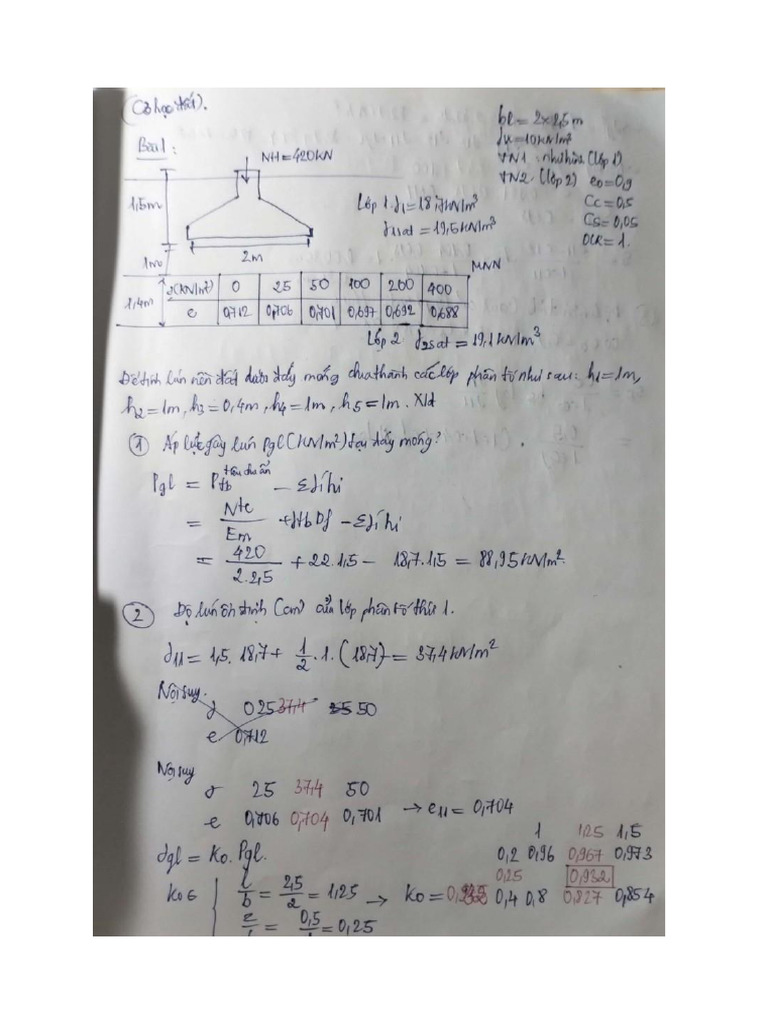 (Cơ học đất).
bl = 2 x 2,5 m
γw = 10 kN/m³
TN1: nén lún (lớp 1)
TN2: (lớp 2) e0 = 0,9
Cc = 0,5
Cs = 0,05
OCR = 1.
Bài 1:
NH = 420 KN
1,5m
Lớp 1. γ1 = 18,7 kN/m³
γ1sat = 19,5 kN/m³
2m
1m
MNN
1,4m
σ(KN/m²) 0 25 50 100 200 400
e 0,712 0,706 0,701 0,697 0,692 0,688
Lớp 2 γ2sat = 19,1 kN/m³
Để tính lún nền đất dưới đáy móng chia thành các lớp phân tố như sau: h1 = 1m,
h2 = 1m, h3 = 0,4m, h4 = 1m, h5 = 1m. Xđ
① Áp lực gây lún Pgl (KN/m²) tại đáy móng?
Pgl = Ptb tiêu chuẩn - Σγihi
= Ntc / Fm + γtb Df - Σγihi
= 420 / 2.2,5 + 22.1,5 - 18,7.1,5 = 88,95 KN/m².
② Độ lún ổn định (cm) của lớp phân tố thứ 1.
σ11 = 1,5. 18,7 + 1/2 .1. (18,7) = 37,4 kN/m²
Nội suy.
σ 0 25 37,4 25 50
e 0,712
Nội suy
σ 25 37,4 50
e 0,706 0,704 0,701 → e11 = 0,704
σgl = Ko. Pgl.
1 1,25 1,5
0,2 0,96 0,967 0,973
0,25 0,932
0,4 0,8 0,827 0,854
Ko ∈ { l/b = 2,5/2 = 1,25 → Ko = 0,932
z/ = 0,5/ = 0,25